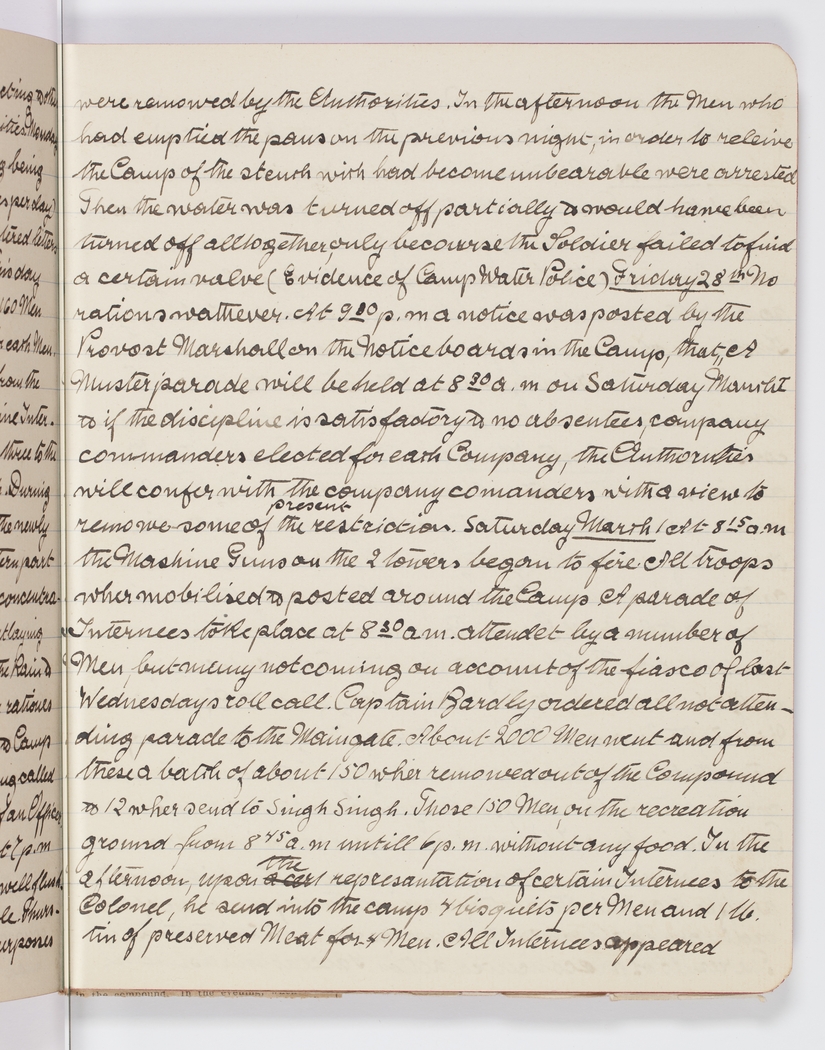 were removed by the Authorities. In the afternoon the Men who
had emptied the pans on the previous night, in order to releive
the Camp of the stench wich had become unbearable were arrested
Then the water was turned off partially & would have been
turned off alltogether, only becourse the Soldier failed to find
a certain valve (Evidence of Camp Water Police) Friday 28th No
rations wathever. At 9 30 p.m a notice was posted by the
Provost Marshall on the Notice boards in the Camp, that, A
Muster parade will be held at 8 30 a.m on Saturday March 1t
& if the discipline is satisfactory & no absentees, company
commanders elected for each Company, the Authorities
will confer with the company comanders with a view to
remove some of the present restriction. Saturday March 1 At 8 15 a.m
the Mashine Guns on the 2 towers began to fire All troops
wher mobilised & posted around the Camp A parade of
Internees toke place at 8 30 a.m. attendet by a number of
Men, but many not coming on account of the fiasco of last
Wednesdays roll call. Captain Bardly ordered all not atten-
ding parade to the Maingate. About 2000 Men went and from
these a batch of about 150 wher removed out of the Compound
& 12 wher send to Singh Singh. Those 150 Men, on the recreation
ground from 8 45 a.m untill 6 p.m. without any food. In the
afternoon, upon the representation of certain Internees to the
Colonel, he send into the camp 4 bisquits per Men and 1 lb.
tin of preserved Meat for 4 Men. All Internees appeared